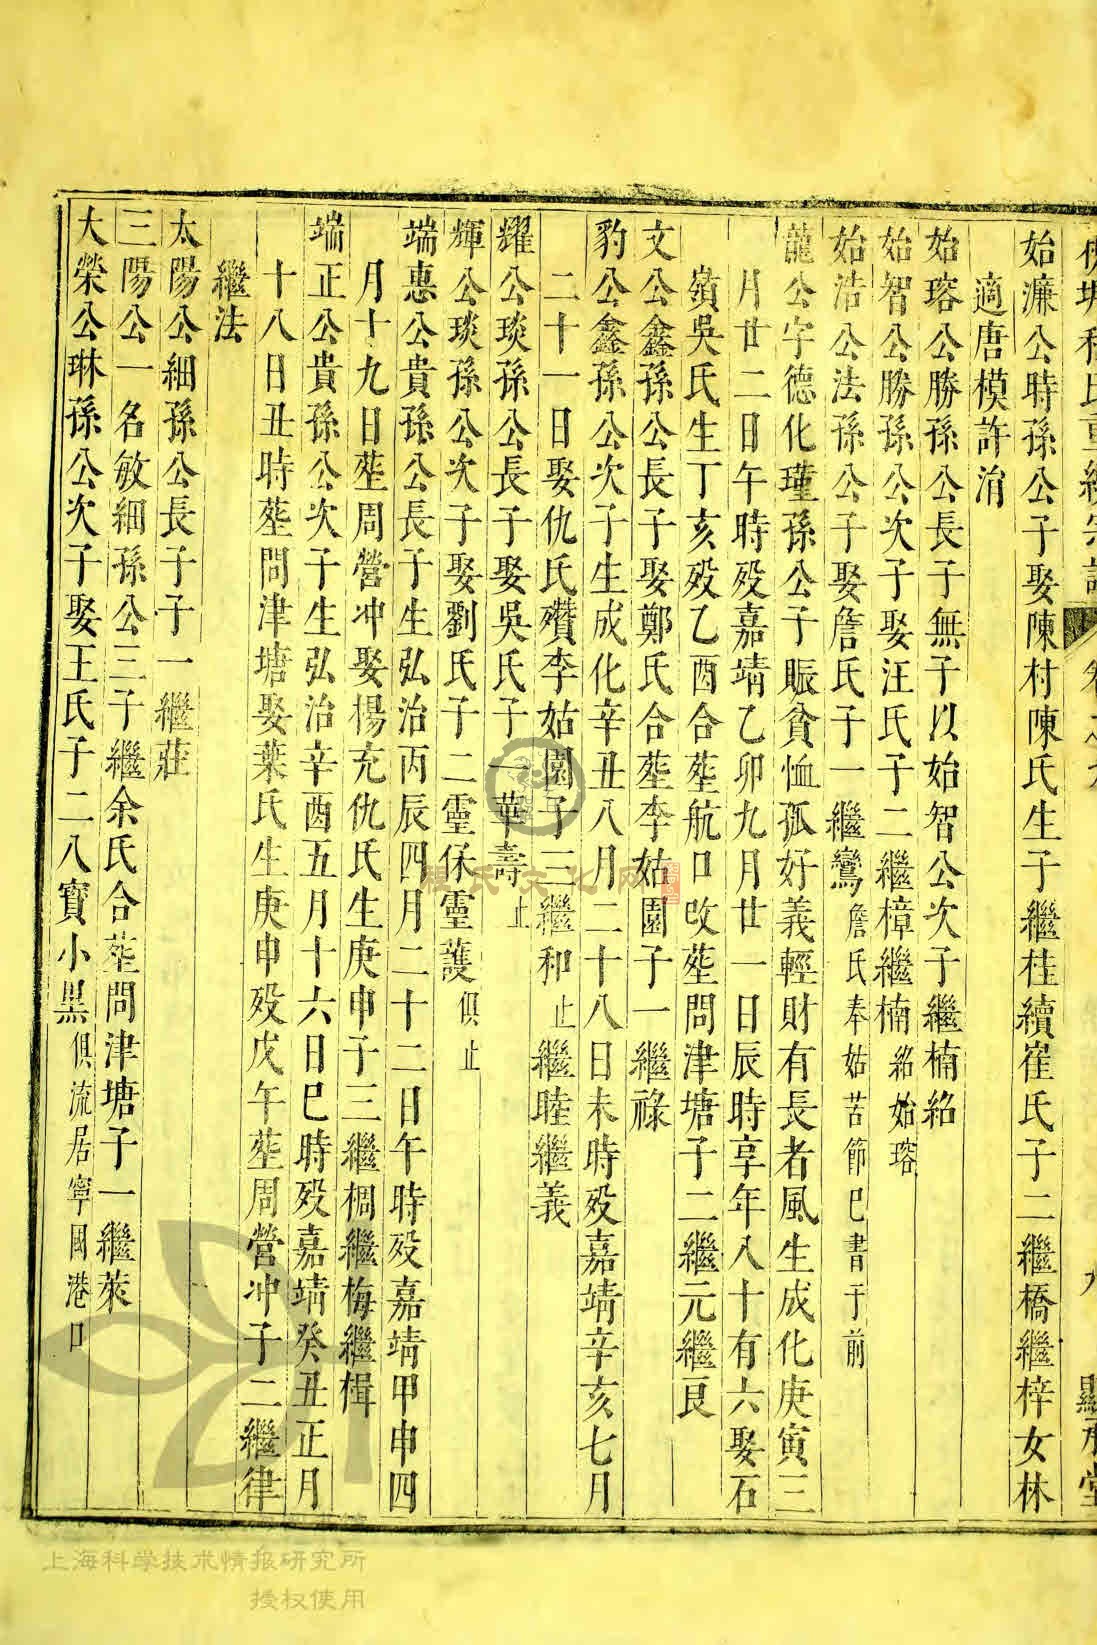 始濂公時孫公子娶陳村陳氏生子繼桂續崔氏子二繼橋繼梓女林
適唐模許洧
始瑢公勝孫公長子無子以始智公次子繼楠紹
始智公勝孫公次子娶汪氏子二繼樟繼楠紹始瑢
始浩公法孫公子娶詹氏子一繼鸞詹氏奉姑苦節已書于前
龍公字德化瑾孫公子賑貧恤孤好義輕財有長者風生成化庚寅三
月廿二日午時殁嘉靖乙卯九月廿一日辰時享年八十有六娶石
嶺吳氏生丁亥殁乙酉合塟航口改塟問津塘子二繼元繼良
文公鑫孫公長子娶鄭氏合塟李姑園子一繼祿
豹公鑫孫公次子生成化辛丑八月二十八日未時殁嘉靖辛亥七月
二十一日娶仇氏殯李姑園子三繼和止繼睦繼義
耀公琰孫公長子娶吳氏子一華壽止
輝公琰孫公次子娶劉氏子二靈保靈護俱止
端惠公貴孫公長子生弘治丙辰四月二十二日午時殁嘉靖甲申四
月十九日塟周營冲娶楊充仇氏生庚申子三繼椆繼梅繼楫
端正公貴孫公次子生弘治辛酉五月十六日巳時殁嘉靖癸丑正月
十八日丑時塟問津塘娶葉氏生庚申殁戊午塟周營冲子二繼律
繼法
太陽公細孫公長子子一繼莊
三陽公一名敏細孫公三子繼余氏合塟問津塘子一繼萊
大榮公琳孫公次子娶王氏子二八寶小黑俱流居寧國港口
程氏文化网
上海科学技术情报研究所
授权使用